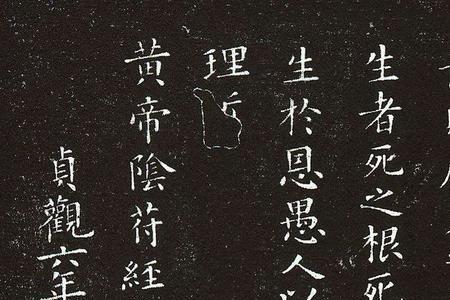 生者死之根死
生於恩愚人以
理
黃帝陰符經
貞觀六年